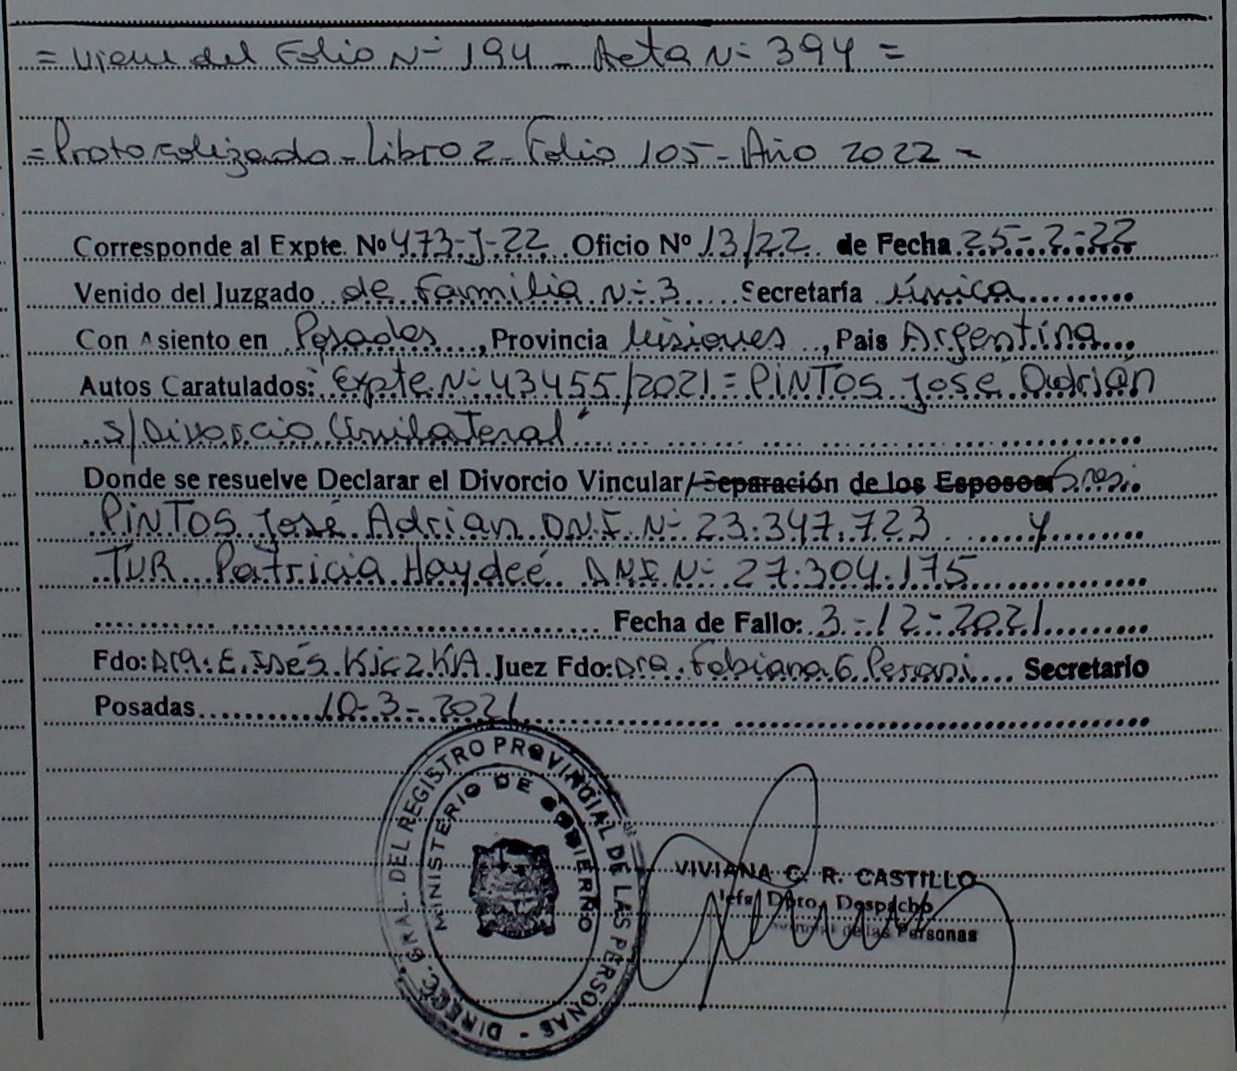 = Viene del Folio Nº 194 - Acta Nº 394 =
= Protocolizado - Libro 2 - Folio 105 - Año 2022 =
Corresponde al Expte. Nº 473-J-22 Oficio Nº 13/22 de Fecha 25-2-22
Venido del Juzgado de Familia Nº 3 Secretaría Única
Con Asiento en Posadas, Provincia Misiones, Pais Argentina
Autos Caratulados: "Expte. Nº 43455/2021 = PINTOS José Adrián
s/Divorcio Unilateral"
Donde se resuelve Declarar el Divorcio Vincular/Separación de los Esposos Sres:
PINTOS José Adrian D.N.I. Nº 23.347.723 y
TUR Patricia Haydeé DNI Nº 27.304.175
Fecha de Fallo: 3-12-2021
Fdo: Dra. E. Inés KICZKA Juez Fdo: Dra. Fabiana G. Perani Secretario
Posadas 10-3-2021
DIRECC. GRAL. DEL REGISTRO PROVINCIAL DE LAS PERSONAS -
MINISTERIO DE GOBIERNO
VIVIANA C. R. CASTILLO
Jefe Dpto. Despacho
de las Personas